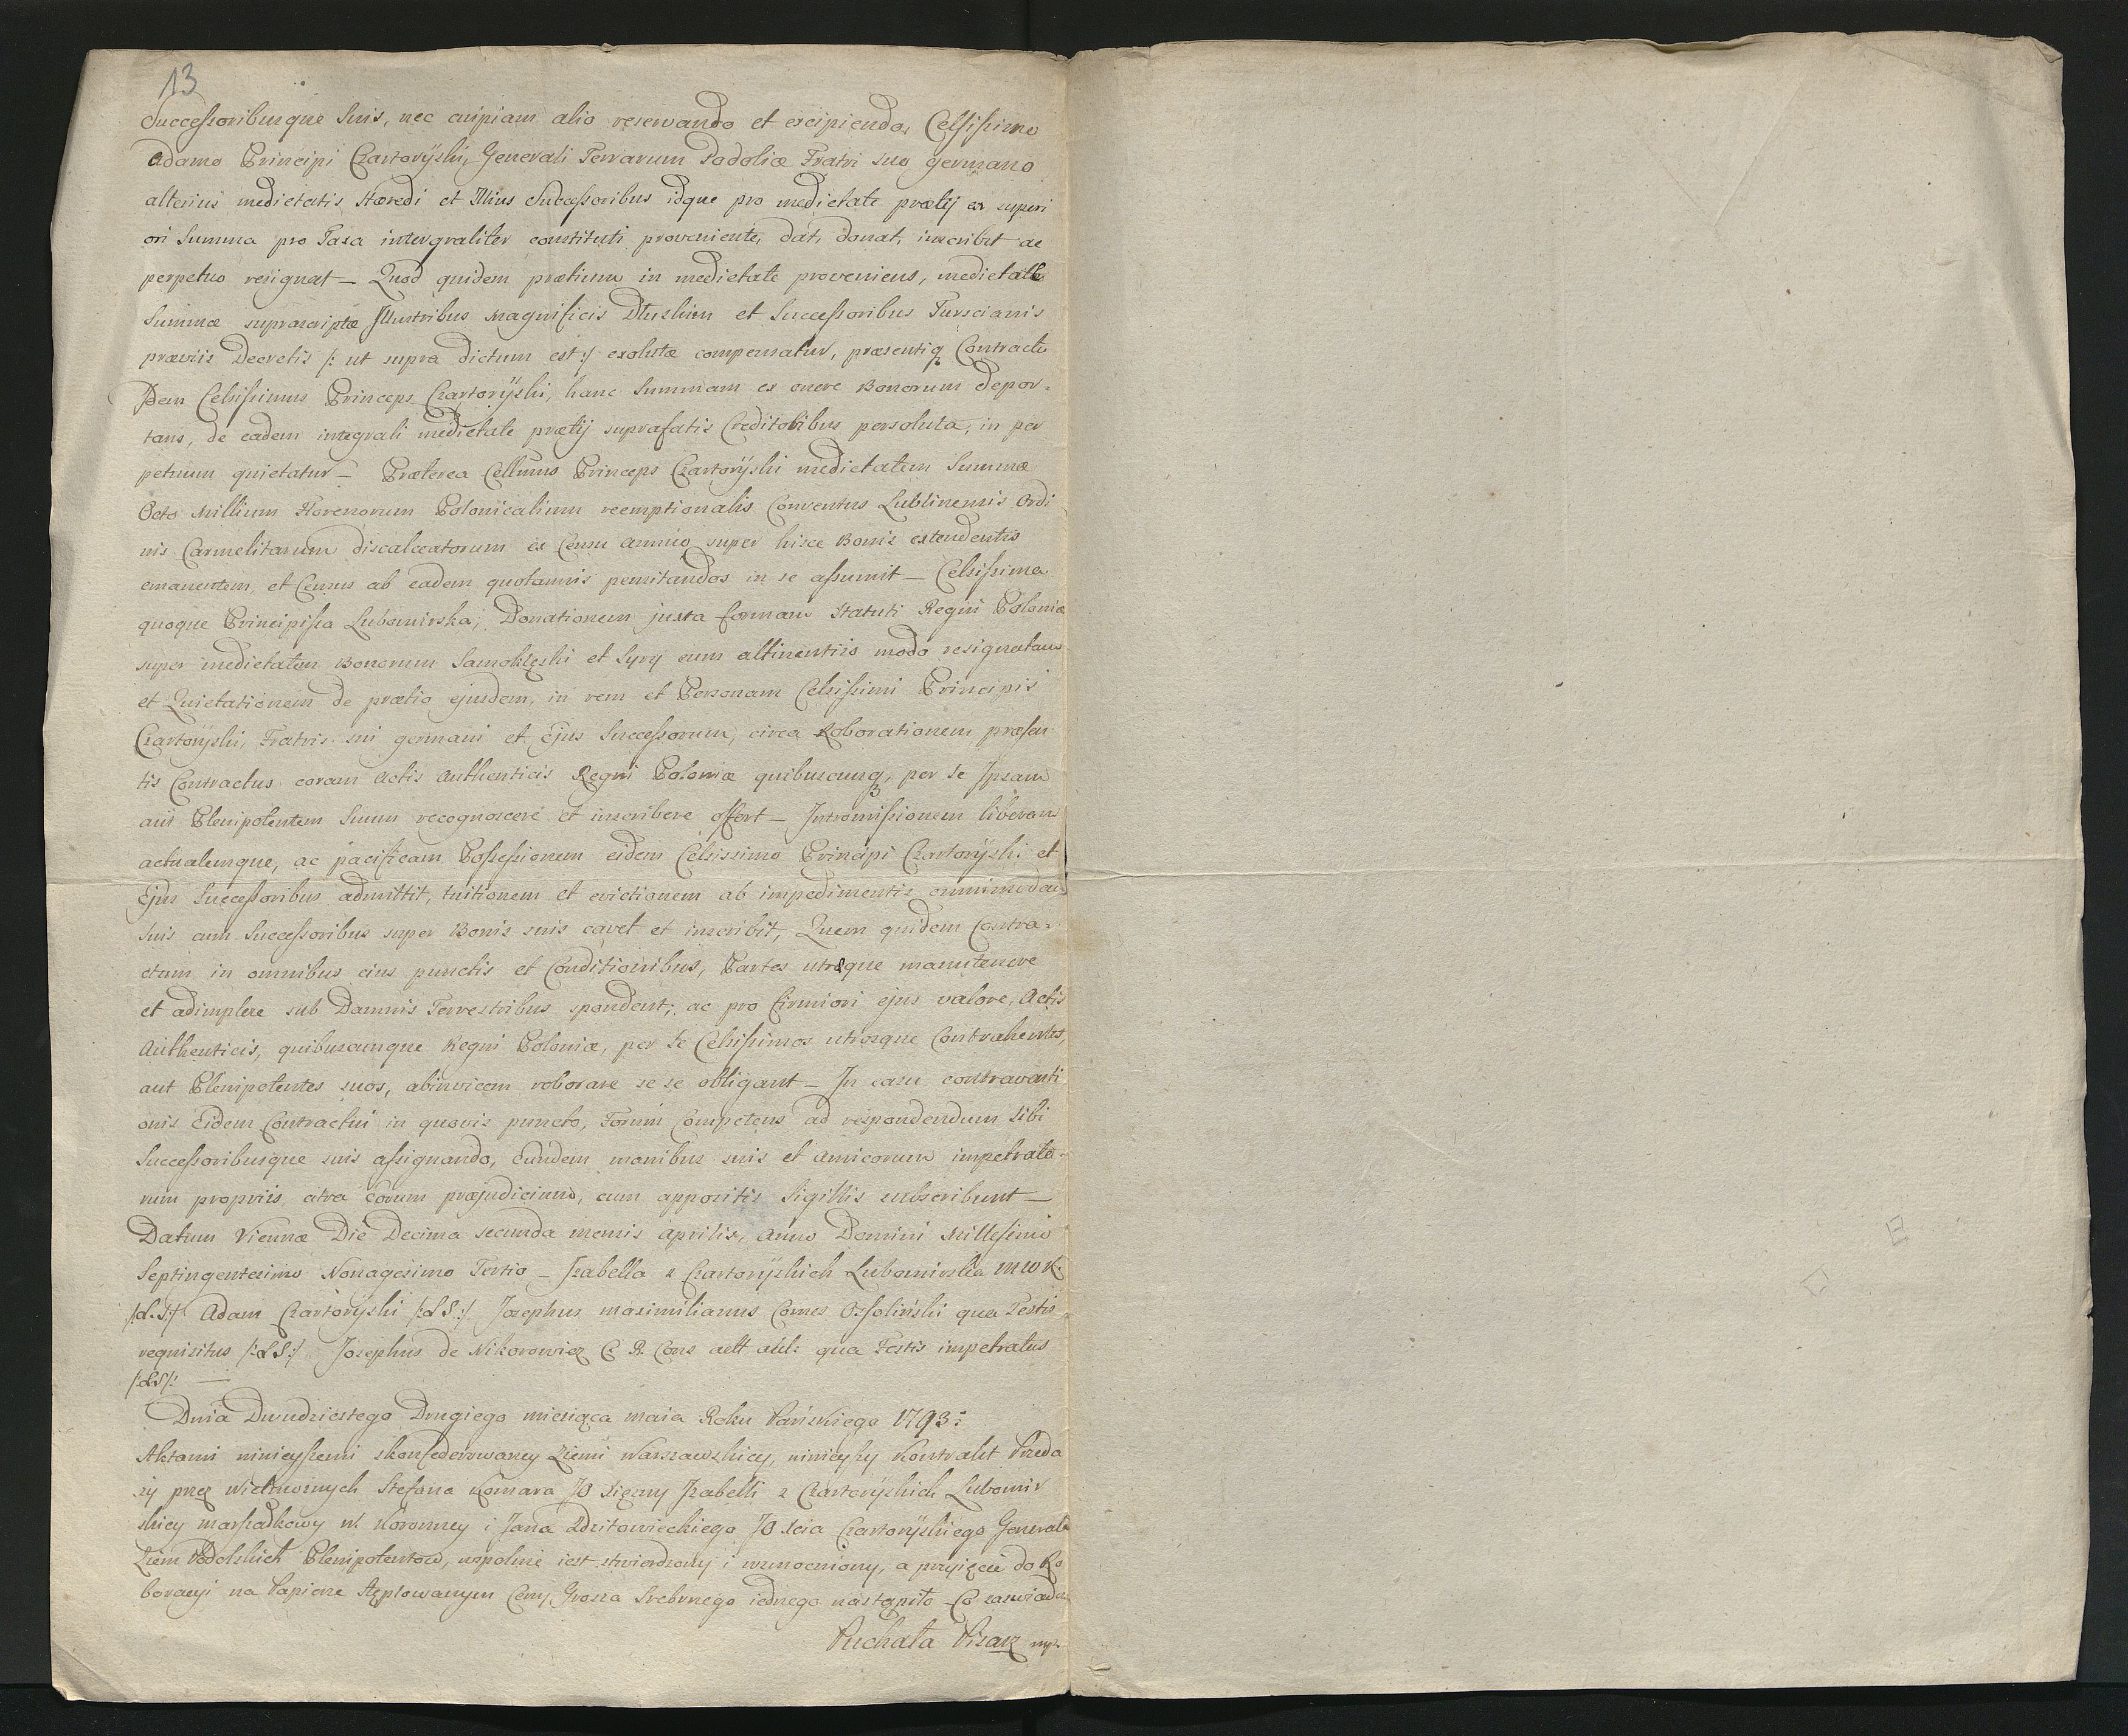 13
Successoribusque Suis, nec cuipiam alio reservando et excipiendo, Celsissimo
Adamo Principi Czartoryski, Generali Terrarum Podoliæ Fratri suo germano
alterius medietatis Hæredi et Illius Successoribus idque pro medietate prætij ex superi
ori Summa pro Taxa intergraliter constituti proveniente, dat, donat, inscribit ac
perpetuo resignat – Quod quidem prætium in medietate proveniens, medietate
Summæ suprascriptæ Illustribus Magnificis Dłuskim et Successoribus Turscianis
præviis Decretis /: ut supra dictum est :/ exolutæ compensatur, præsentiq Contractu
Idem Celsissimus Princeps Czartoryski, hanc Summam ex onere Bonorum depor=
tans, de eadem integrali medietate prætij suprafatis Creditoribus persoluta, in per
petuum quietatur – Præterea Cellmus Princeps Czartoryski medietatem Summæ
Octo Millium Florenorum Polonicalium reemptionalis Conventus Lublinensis Ordi
nis Carmelitarum discalceatorum ex Censu annuo super hisce Bonis extendentis
emanentem, et Census ab eadem quotannis pensitandos in se assumit – Celsissima
quoque Principissa Lubomirska, Donationem juxta formam Statuti Regni Poloniæ
super medietatem Bonorum Samoklęski et Syry cum attinentiis modo resignatam
et Quietationem de prætio ejusdem, in rem et Personam Celsissimi Principis
Czartoryski, Fratris sui germani et Ejus Successorum, circa Roborationem præsen
tis Contractus coram Actis Authenticis Regni Poloniæ quibuscunq, per se Ipsam
aut Plenipotentem Suum recognoscere et inscribere offert – Intromissionem liberam
actualemque, ac pacificam Possessionem eidem Celsissimo Principi Czartoryski et
Ejus Successoribus admittit, tuitionem et evictionem ab impedimentis omnimodam
Suis cum Successoribus super Bonis suis cavet et inscribit, Quem quidem Contra=
ctum in omnibus eius punctis et Conditionibus, Partes utræque manutenere
et adimplere sub Damnis Terrestribus spondent; ac pro firmiori ejus valore, Actis
Authenticis, quibuscunque Regni Poloniæ, per se Celsissimos utrosque Contrahentes,
aut Plenipotentes suos, abinvicem roborare se se obligant – In casu contraventi
onis Eidem Contractui in quovis puncto, Forum Competens ad respondendum Sibi
Successoribusque suis assignando, Eundem manibus suis et Amicorum impetrato=
rum propriis citra eorum præjudicium, cum appositis Sigillis subscribunt –
Datum Viennæ Die Decima secunda mensis Aprilis, Anno Domini Millesimo
Septingentesimo Nonagesimo Tertio – Izabella z Czartoryskich Lubomirska M W K.
/:L.S:/ Adam Czartoryski /:L S:/ Josephus Maximilianus Comes Ossoliński qua Testis
requisitus /:L S:/ Josephus de Nikorowicz C R. Cons actt aul: qua Testis impetratus
/:LS/: —
Dnia Dwudziestego Drugiego miesiąca maia Roku Pańskiego 1793:
Aktami ninieyszemi skonfederowaney Ziemi Warszawskiey, ninieyszy Kontrakt Przeda
ży przez Wielmożnych Stefana Komara JO Xiężny Izabelli z Czartoryskich Lubomir
skiey marszałkowy W. Koronney i Jana Zdzitowieckiego JO Xcia Czartoryskiego Generała
Ziem Podolskich Plenipotentow, wspolnie iest stwierdzony i wzmocniony, a przyięcie do Ro
boracyi na Papierze Stęplowanym Ceny Grosza Srebrnego iednego nastąpiło – Co zaświadcz
Puchała Pisarz mp